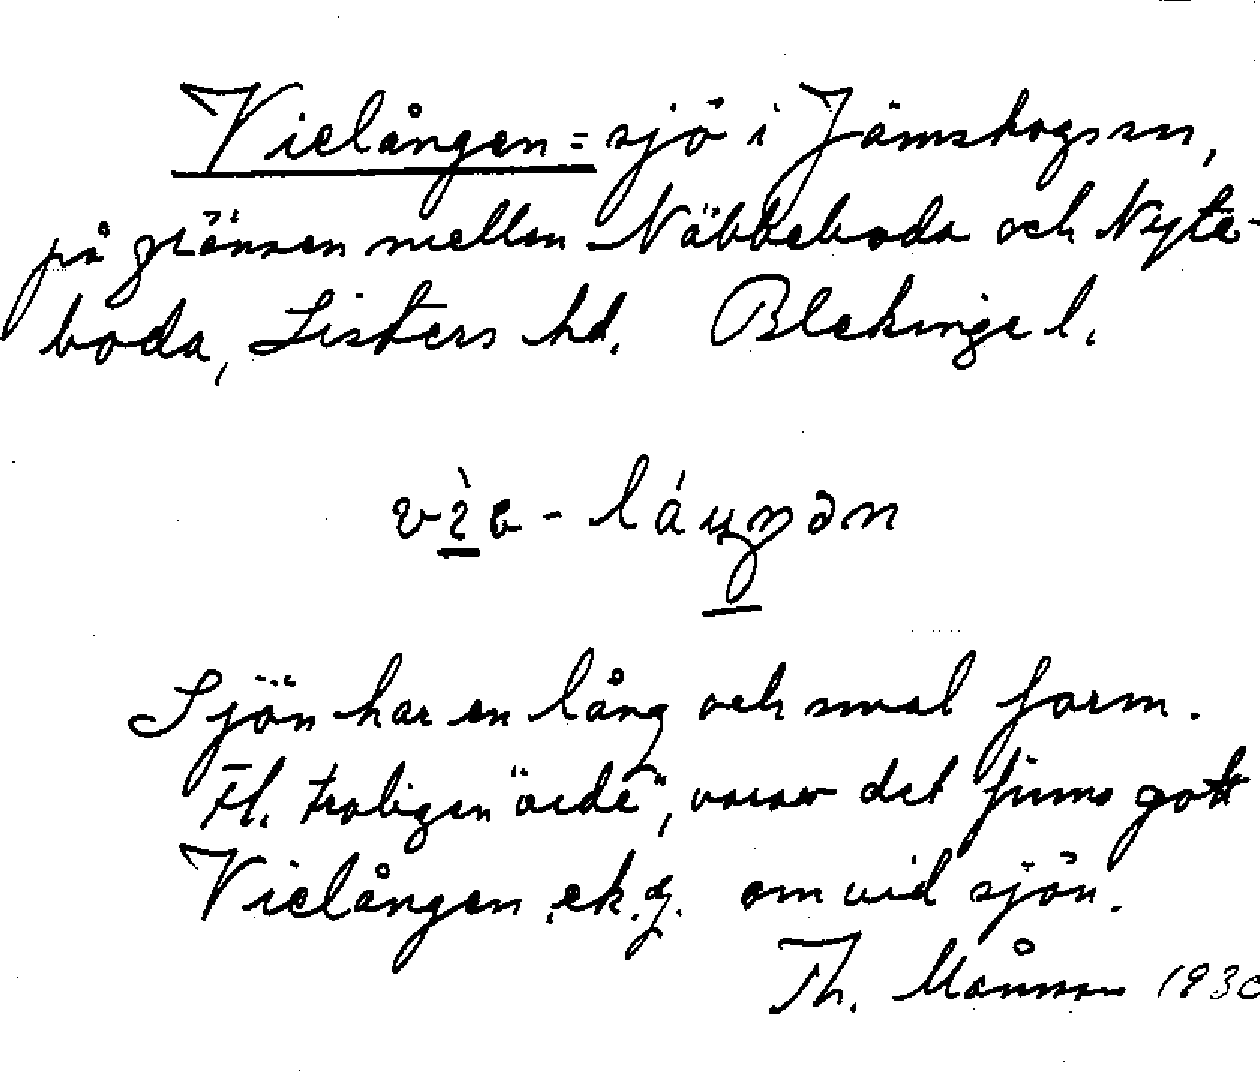 Vielången = sjö i Jämshogs sn,
på gränsen mellan Näbbeboda och Nyte-
boda, Listers hd. Blekinge l.
vìe - láŋən
Sjön har en lång och smal form.
Fl. troligen "vide", varav det finns gott
Vielången ek.g. om vid sjön.
Th. Månsson 1930